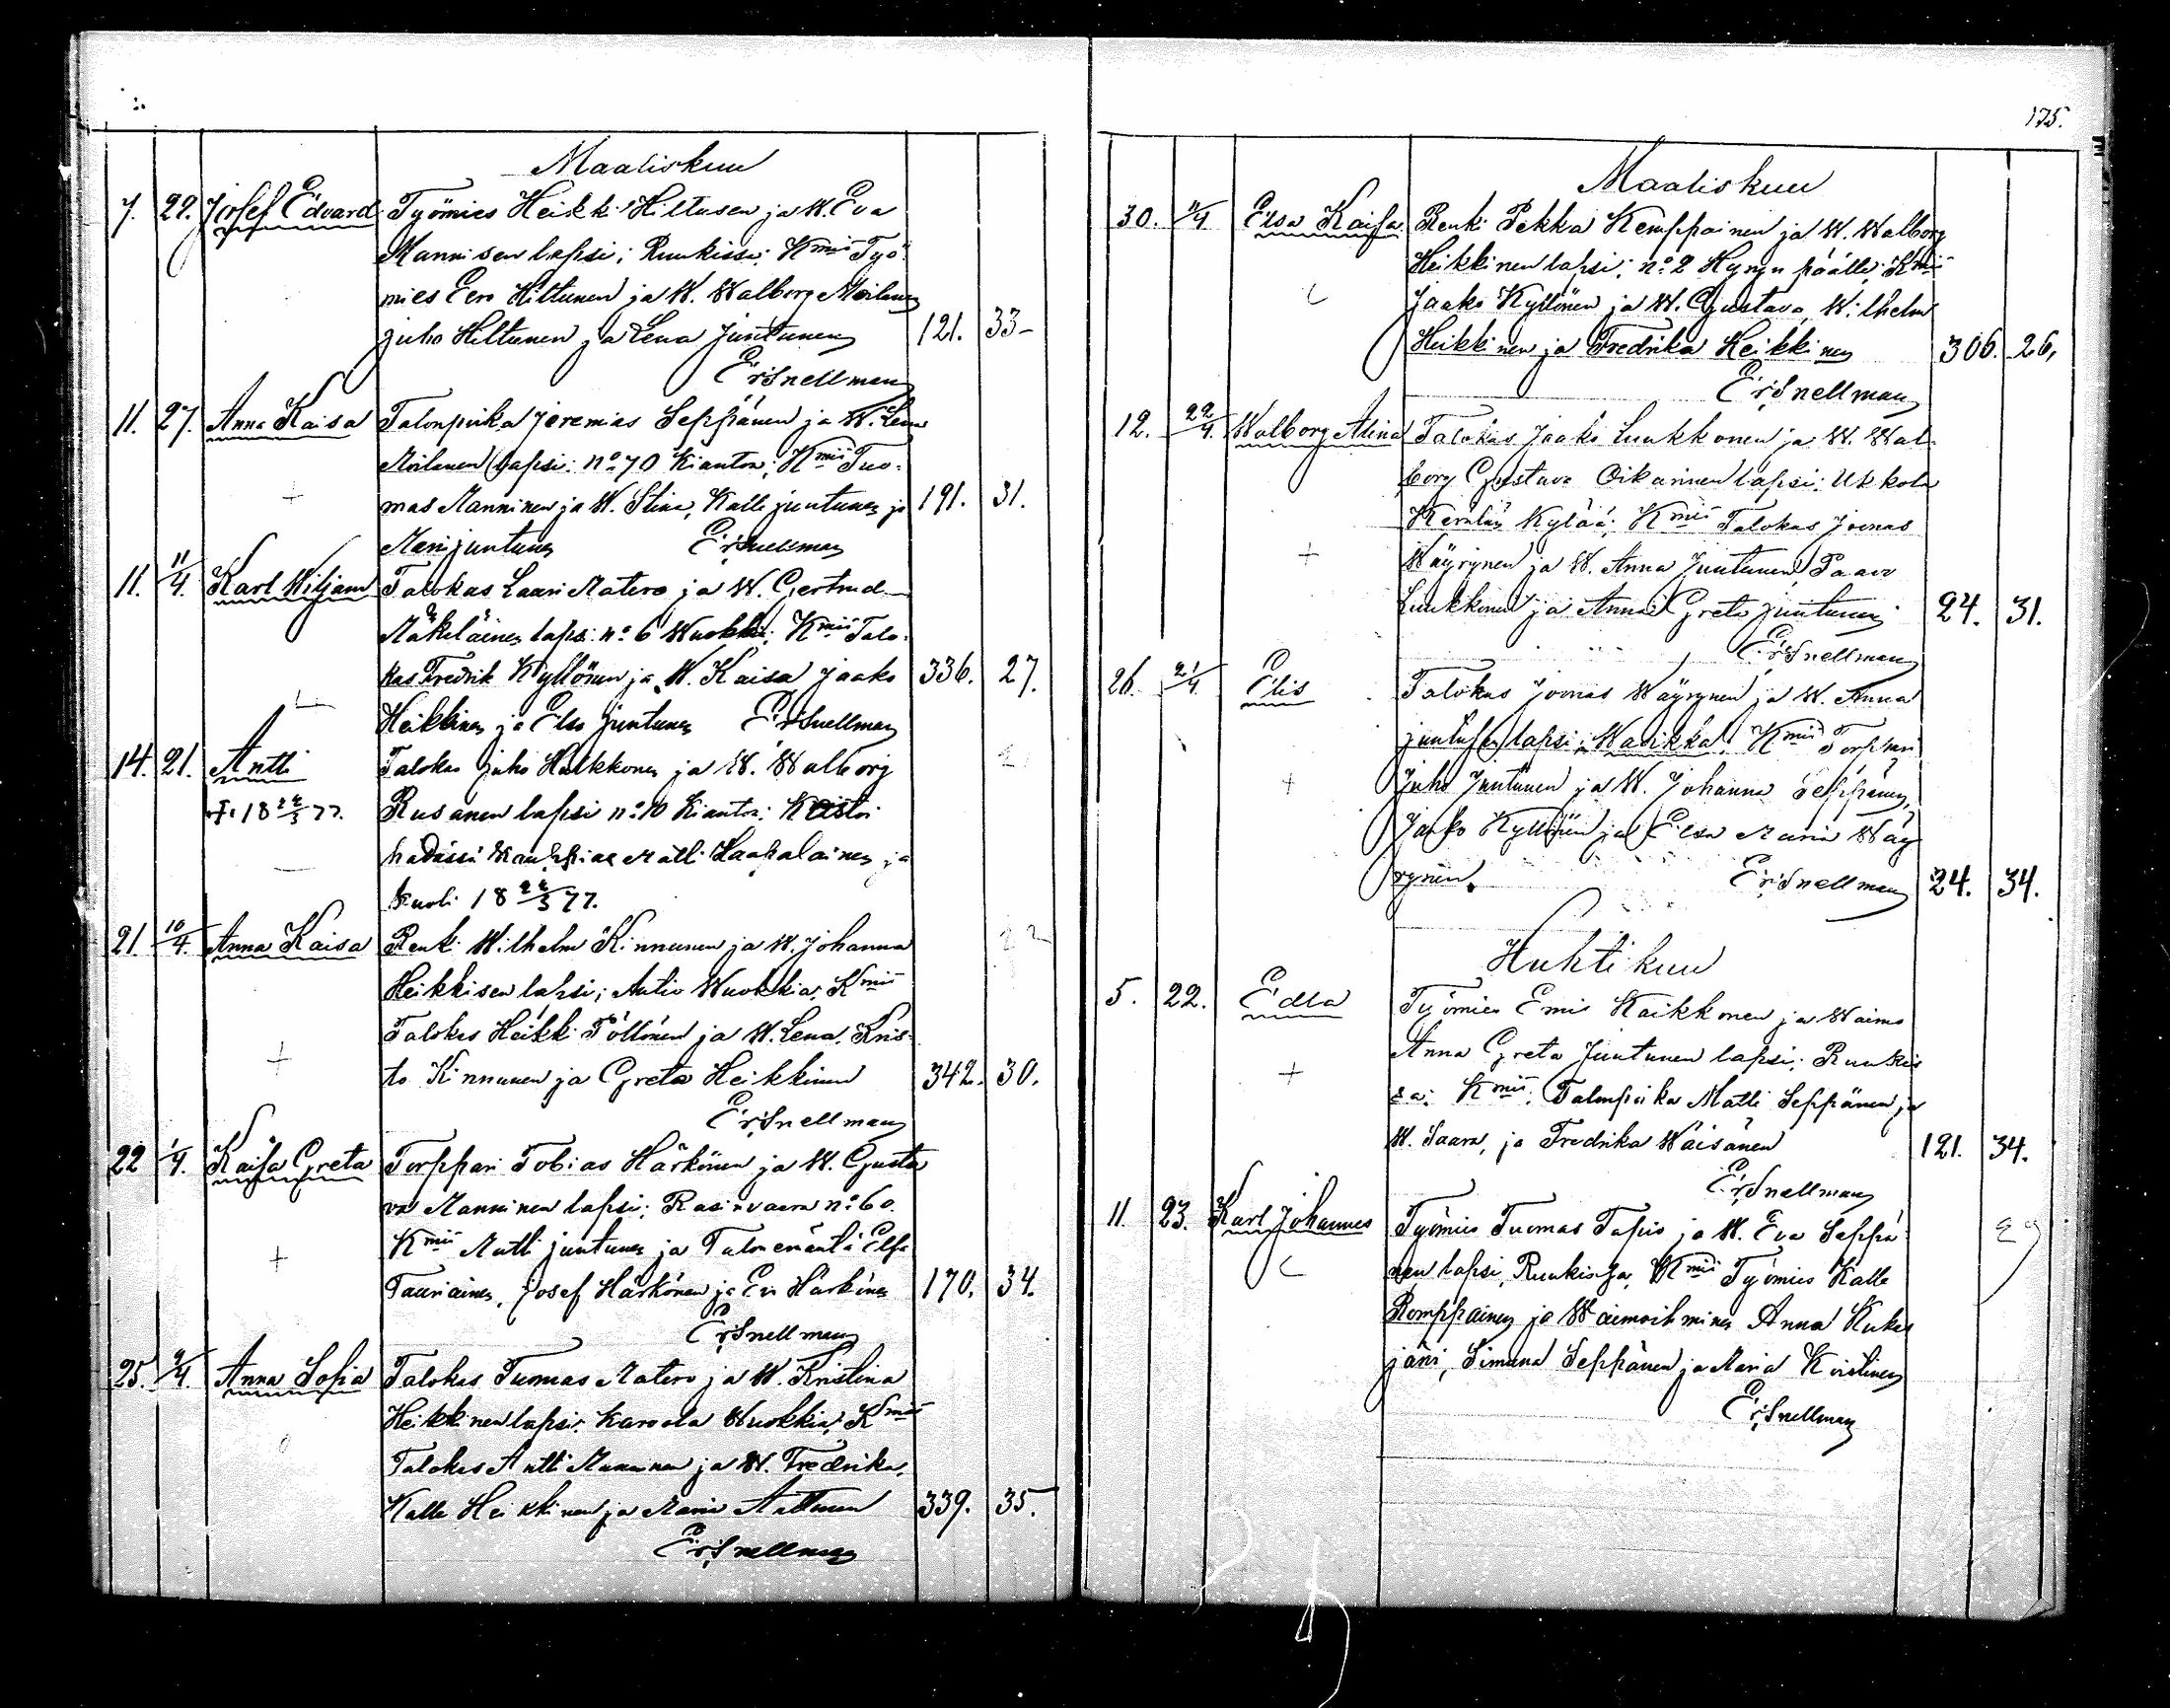 Maaliskuu
7. 22. Josef Edvard Työmies Heikki Hiltusen ja W. Eva
Mannisen lapsi; Ruukissa; Kmii Työ-
mies Eero Hiltunen ja W. Walborg Moilanen
Juho Hiltunen ja Lena Juntunen 121. 33-
E:r:Snellman
11. 27. Anna Kaisa Talonpoika Jeremias Seppänen ja W. Lena
Moilanen lapsi: No 70 Kianton; Kmii Tuo-
mas Manninen ja W. Stina, Kalle Juntunen ja 191. 31.
Mari Juntunen E:r:Snellman
11. 11/4. Karl Wiljam Talokas Lauri Matero ja W. Gertrud
Mäkeläinen lapsi no 6 Wuokki; Kmii Talo-
kas Fredrik Kyllönen ja W. Kaisa Jaako 336. 27.
Heikkinen ja Elsa Juntunen E:r:Snellman
14. 21. Antti Talokas Juho Hulkkonen ja W. Walborg
+ 18 24/3 77. Rusanen lapsi no 10 Kianta; Kastoi
hädässä Matti Laapalainen ja
kuoli 18 24/3 77.
21. 10/4. Anna Kaisa Renki Wilhelm Kinnunen ja W. Johanna
Heikkisen lapsi; Autio Wuokkia; Kmii
Talokas Heikki Töllönen ja W. Lena, Kris-
to Kinnunen ja Greta Heikkinen 342. 30.
E:r:Snellman
22 1/4. Kaisa Greta Torppari Tobias Härkönen ja W. Gusta
va Manninen lapsi; Rasinvaara no 60.
Kmii Matti Juntunen ja Talonemäntä Elsa
Tauriainen, Josef Härkönen ja Eva Härkönen 170. 34.
E:r:Snellman
25. 9/4. Anna Sofia Talokas Tuomas Matero ja W. Kristina
Heikkinen lapsi; Karvola Wuokkia; Kmii
Talokas Antti Manninen ja W. Fredrika,
Kalle Heikkinen ja Maria Anttunen 339. 35.
E:r:Snellman
175.
Maaliskuu
30. 11/4 Elsa Kaisa Renki Pekka Kemppainen ja W. Walborg
Heikkinen lapsi; no 2 Hyryn päällä; Kmii
Jaako Kyllönen ja W. Gustava, Wilhelm
Heikkinen ja Fredrika Heikkinen 306. 26,
E:r:Snellman
12. 22/4. Walborg Alina Talokas Jaako Luukkonen ja W. Wal-
borg Gustava Oikarinen lapsi; Ukkola
Kerälän Kylää; Kmii Talokas Joonas
Wäyrynen ja W. Anna Juntunen, Paavo
Luukkonen ja Anna Greta Juntunen 24. 31.
E:r:Snellman
26. 21/4. Elis Talokas Joonas Wäyrynen ja W. Anna
Juntusen lapsi; Wasikka; Kmii Torppari
Juho Juntunen ja W. Johanna Seppänen,
Jaako Kyllönen ja Elsa Maria Wäy
rynen. E:r:Snellman 24. 34.
Huhtikuu
5. 22. Edla Työmies Kaikkonen ja Waimo
Anna Greta Juntunen lapsi; Ruukis
sa: Kmii: Talonpoika Matti Seppänen ja
W. Saara, ja Fredrika Wäisänen 121. 34.
E:r:Snellman
11. 23. Karl Johannes Työmies Tuomas Tapio ja W. Eva Seppä-
nen lapsi, Ruukissa, Kmii Työmies Kalle 29
Romppainen ja Waimoihminen Anna Kukas
järvi, Simana Seppänen ja Maria Kvistinen
E:r:Snellman